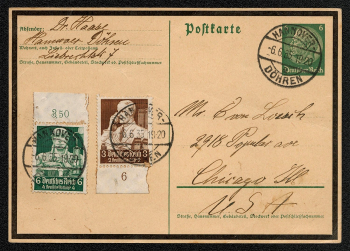 Absender: Dr. Haas
Hannover Döhren
Wohnort, auch Zustell- oder Leitpostamt
Straße, Hausnummer, Gebäudeteil, Stockwerk od. Postschließfachnummer
Postkarte
6
Deutsches Reich
HANNOVER
-6.6.
DÖHREN
850
HANNOVER
6 Deutsches Reich 6
3 Deutsches Reich 3
.6.35.19-20
6
Mr. C
2918 Poplar ave
Chicago Ill.
U S A
Straße, Hausnummer, Gebäudeteil, Stockwerk od. Postschließfachnummer